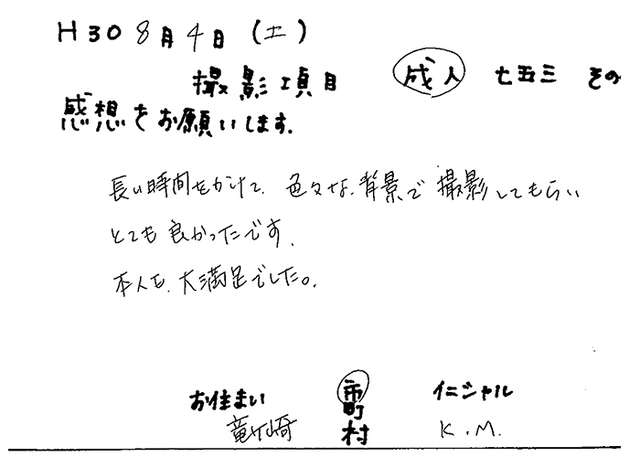 H30 8月4日(土)
撮影項目 成人 七五三 その
感想をお願いします.
長い時間をかけて、色々な背景で撮影してもらい
とても良かったです.
本人も、大満足でした。
お住まい 市 イニシャル
町
竜ケ崎 村 K.M.